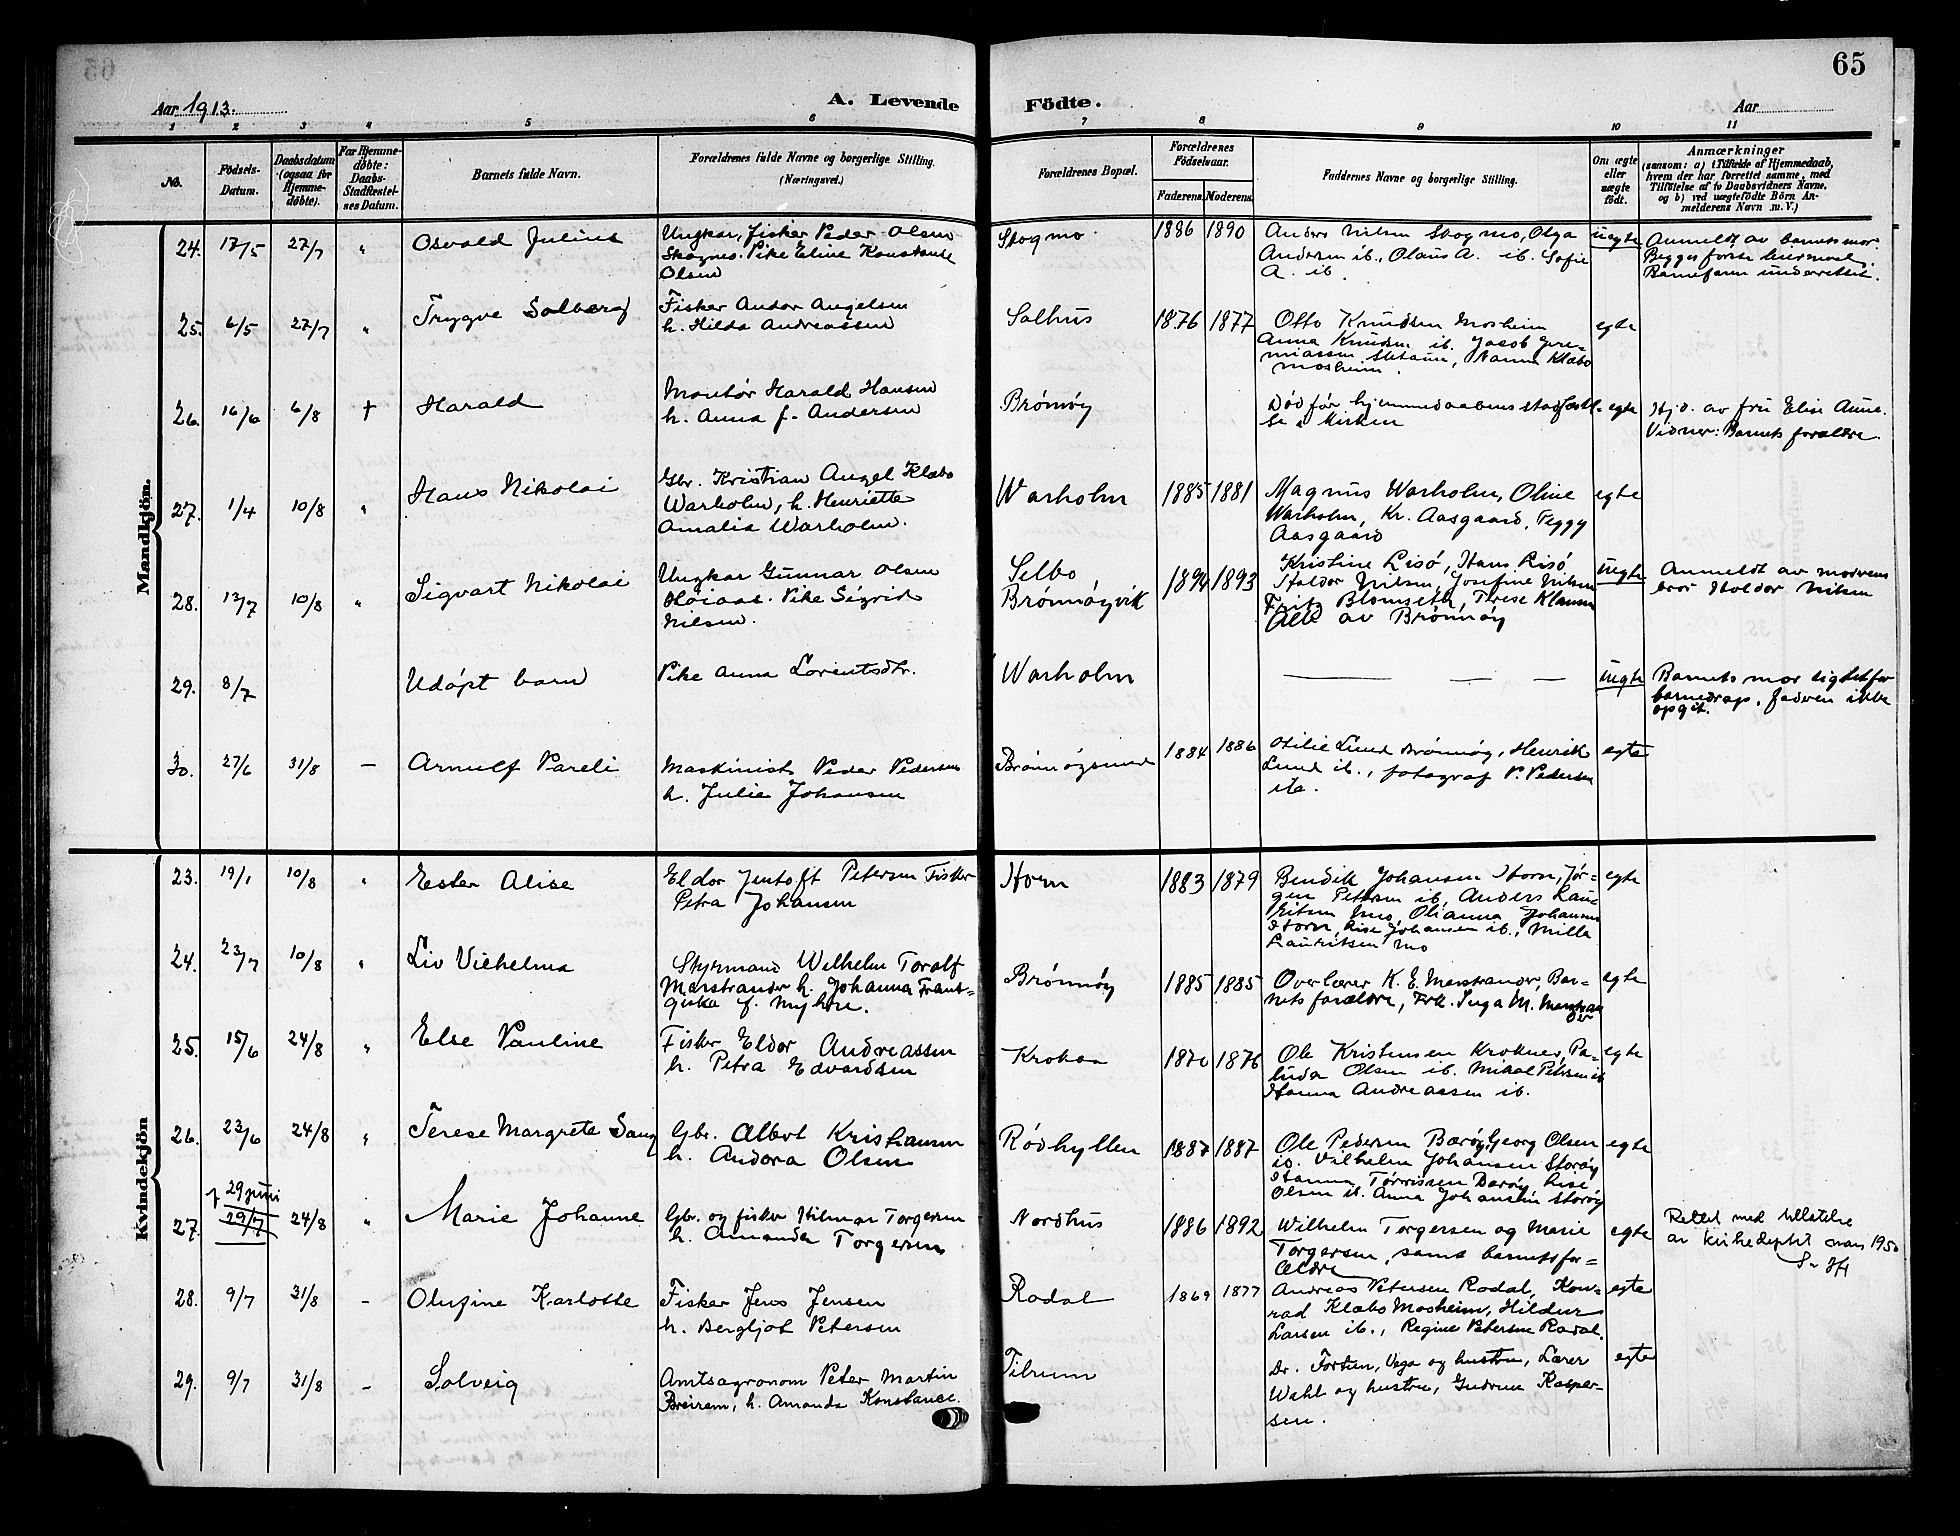 65
Aar 1913.
A. Levende Födte.
Aar
1 2 3 4 5 6 7 8 9 10 11
No.
Födsels-
Datum.
Daabsdatum
(ogsaa for
Hjemme-
døbte).
For Hjemme-
døbte:
Daabs-
Stadfæstel-
ses Datum.
Barnets fulde Navn.
Forældrenes fulde Navne og borgerlige Stilling.
(Næringsvei.)
Forældrenes Bopæl.
Forældrenes
Fødselsaar.
Faderens. Moderens.
Faddernes Navne og borgerlige Stilling.
Om ægte
eller
uægte
født.
Anmærkninger
(saasom: a) i Tilfælde af Hjemmedaab,
hvem der har forrettet samme, med
Tilføielse af to Daabsvidners Navne,
og b) ved uægtefödte Börn An-
melderens Navn m. V.)
Mandkjön.
24. 17/5 27/7 " Osvald Julius
Ungkar, fisker Peder Olsen
Skogmo. Pike Eline Konstanse
Olsen
Skogmo 1886 1890
Anders Nilsen Skogmo, Olga
Andersen ib., Olaus A. ib. Sofie
A. ib.
uegte
Anmeldt av barnets mor.
Begges første leiermaal.
Barnefaren underrettet.
25. 6/5 27/7 " Trygve Solberg
Fisker Andor Angelsen
h. Hilda Andreassen
Salhus 1876 1877
Otto Knudsen Mosheim
Anna Knudsen ib. Jacob Jere-
miassen, Nanna Klæbo
Mosheim.
egte
26. 16/6 6/8 † Harald
Montør Harald Hansen
h. Anna f. Andersen
Brønnøy
Død før hjemmedaabens stadfæstel-
se i kirken
egte
Hj.d. av fru Elise Aune.
Vidner: Barnets forældre.
27. 1/4 10/8 " Hans Nikolai
Gbr. Kristian Angel Klæbo
Warholm, h. Henriette
Amalia Warholm.
Warholm 1885 1881
Magnus Warholm, Oline
Warholm, Kr. Aasgaard, Peggy
Aasgaard
egte
28. 13/7 10/8 " Sigvart Nikolai
Ungkar Gunnar Olsen
Høiaas. Pike Sigrid
Nilsen.
Selbo
Brønnøyvik 1894 1893
Kristine Lisø, Hans Lisø,
Haldor Nilsen, Josefine Nilsen
Fritz Blomseth, Terese Klausen
Alle av Brønnøy
uegte
Anmeldt av morens
bror Haldor Nilsen
29. 8/7 Udøpt barn
Pike Anna Lorentsdtr.
Warholm
— — —
uegte
Barnets mor sigtet for
barnedrap. faderen ikke
opgit.
30. 27/6 31/8 — Arnulf Pareli
Maskinist Peder Pedersen
h. Julie Johansen
Brønnøysund 1884 1886
Otilie Lund Brønnøy, Henrik
Lund ib., fotograf P. Pedersen
ib.
egte
Kvindekjön
23. 19/1 10/8 " Ester Alise
Eldor Jentoft Petersen Fisker
Petra Johansen
Horn 1883 1879
Bendik Johansen Horn, Jør-
gen Petersen ib, Anders Lau-
ritsen Mo, Olianna Johansen
Horn, Lise Johansen ib., Milla
Lauritsen Mo
egte
24. 23/7 10/8 " Liv Vilhelma
Styrmand Wilhelm Toralf
Marstrander h. Johanna Frant-
f. Myhre.
Brønnøy 1885 1885
Overlærer K. E. Marstrander, Bar-
nets forældre, Frk. Inga M. Marstran
der
egte
25. 15/6 24/8 " Else Pauline
Fisker Eldor Andreassen
h. Petra Edvardsen
Krokaa 1870 1876
Ole Kristensen Kroknes, Pa-
Olsen ib. Mikal Petersen ib
Hanna Andreassen ib.
egte
26. 23/6 24/8 " Terese Margrete Sang
Gbr. Albert Kristiansen
h. Andora Olsen
Rødhyllen 1887 1887
Ole Pedersen Barøy, Georg Olsen
ib. Vilhelm Johansen Storøy
Hanna Tørrissen Barøy, Lise
Olsen ib. Anna Johansen Storøy
egte
29 juni
27. 29/7 24/8 " Marie Johanne
Gbr. og fisker Hilmar Torgersen
h. Amanda Torgersen
Nordhus 1886 1892
Wilhelm Torgersen og Marie
Torgersen, samt barnets for-
ældre
egte
Rettet med tillatelse
av kirkedeptet mars 1950
28. 9/7 31/8 - Olufine Karlotte
Fisker Jens Jensen
h. Bergljot Petersen
Rodal 1869 1877
Andreas Petersen Rodal, Kon-
rad Klæbo Mosheim, Hildur
Larsen ib., Regine Petersen Rodal.
egte
29. 9/7 31/8 - Solveig
Amtsagronom Peter Martin
Breirem, h. Amanda Konstance.
Tilrem
Dr. Fortun, Vega og hustru, Lærer
Wahl og hustru, Gudrun Kasper-
sen.
egte